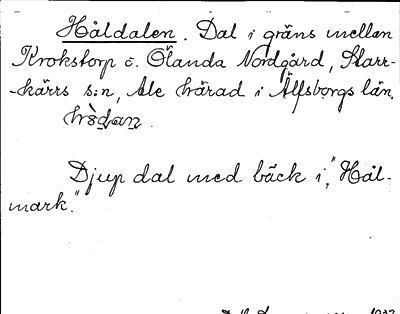 Håldalen. Dal i gräns mellan
Krokstorp o. Ölanda Nordgård, Starr-
-kärrs s:n, Ale härad i Älfsborgs län.
Djup dal med bäck i, "Hål-
mark."